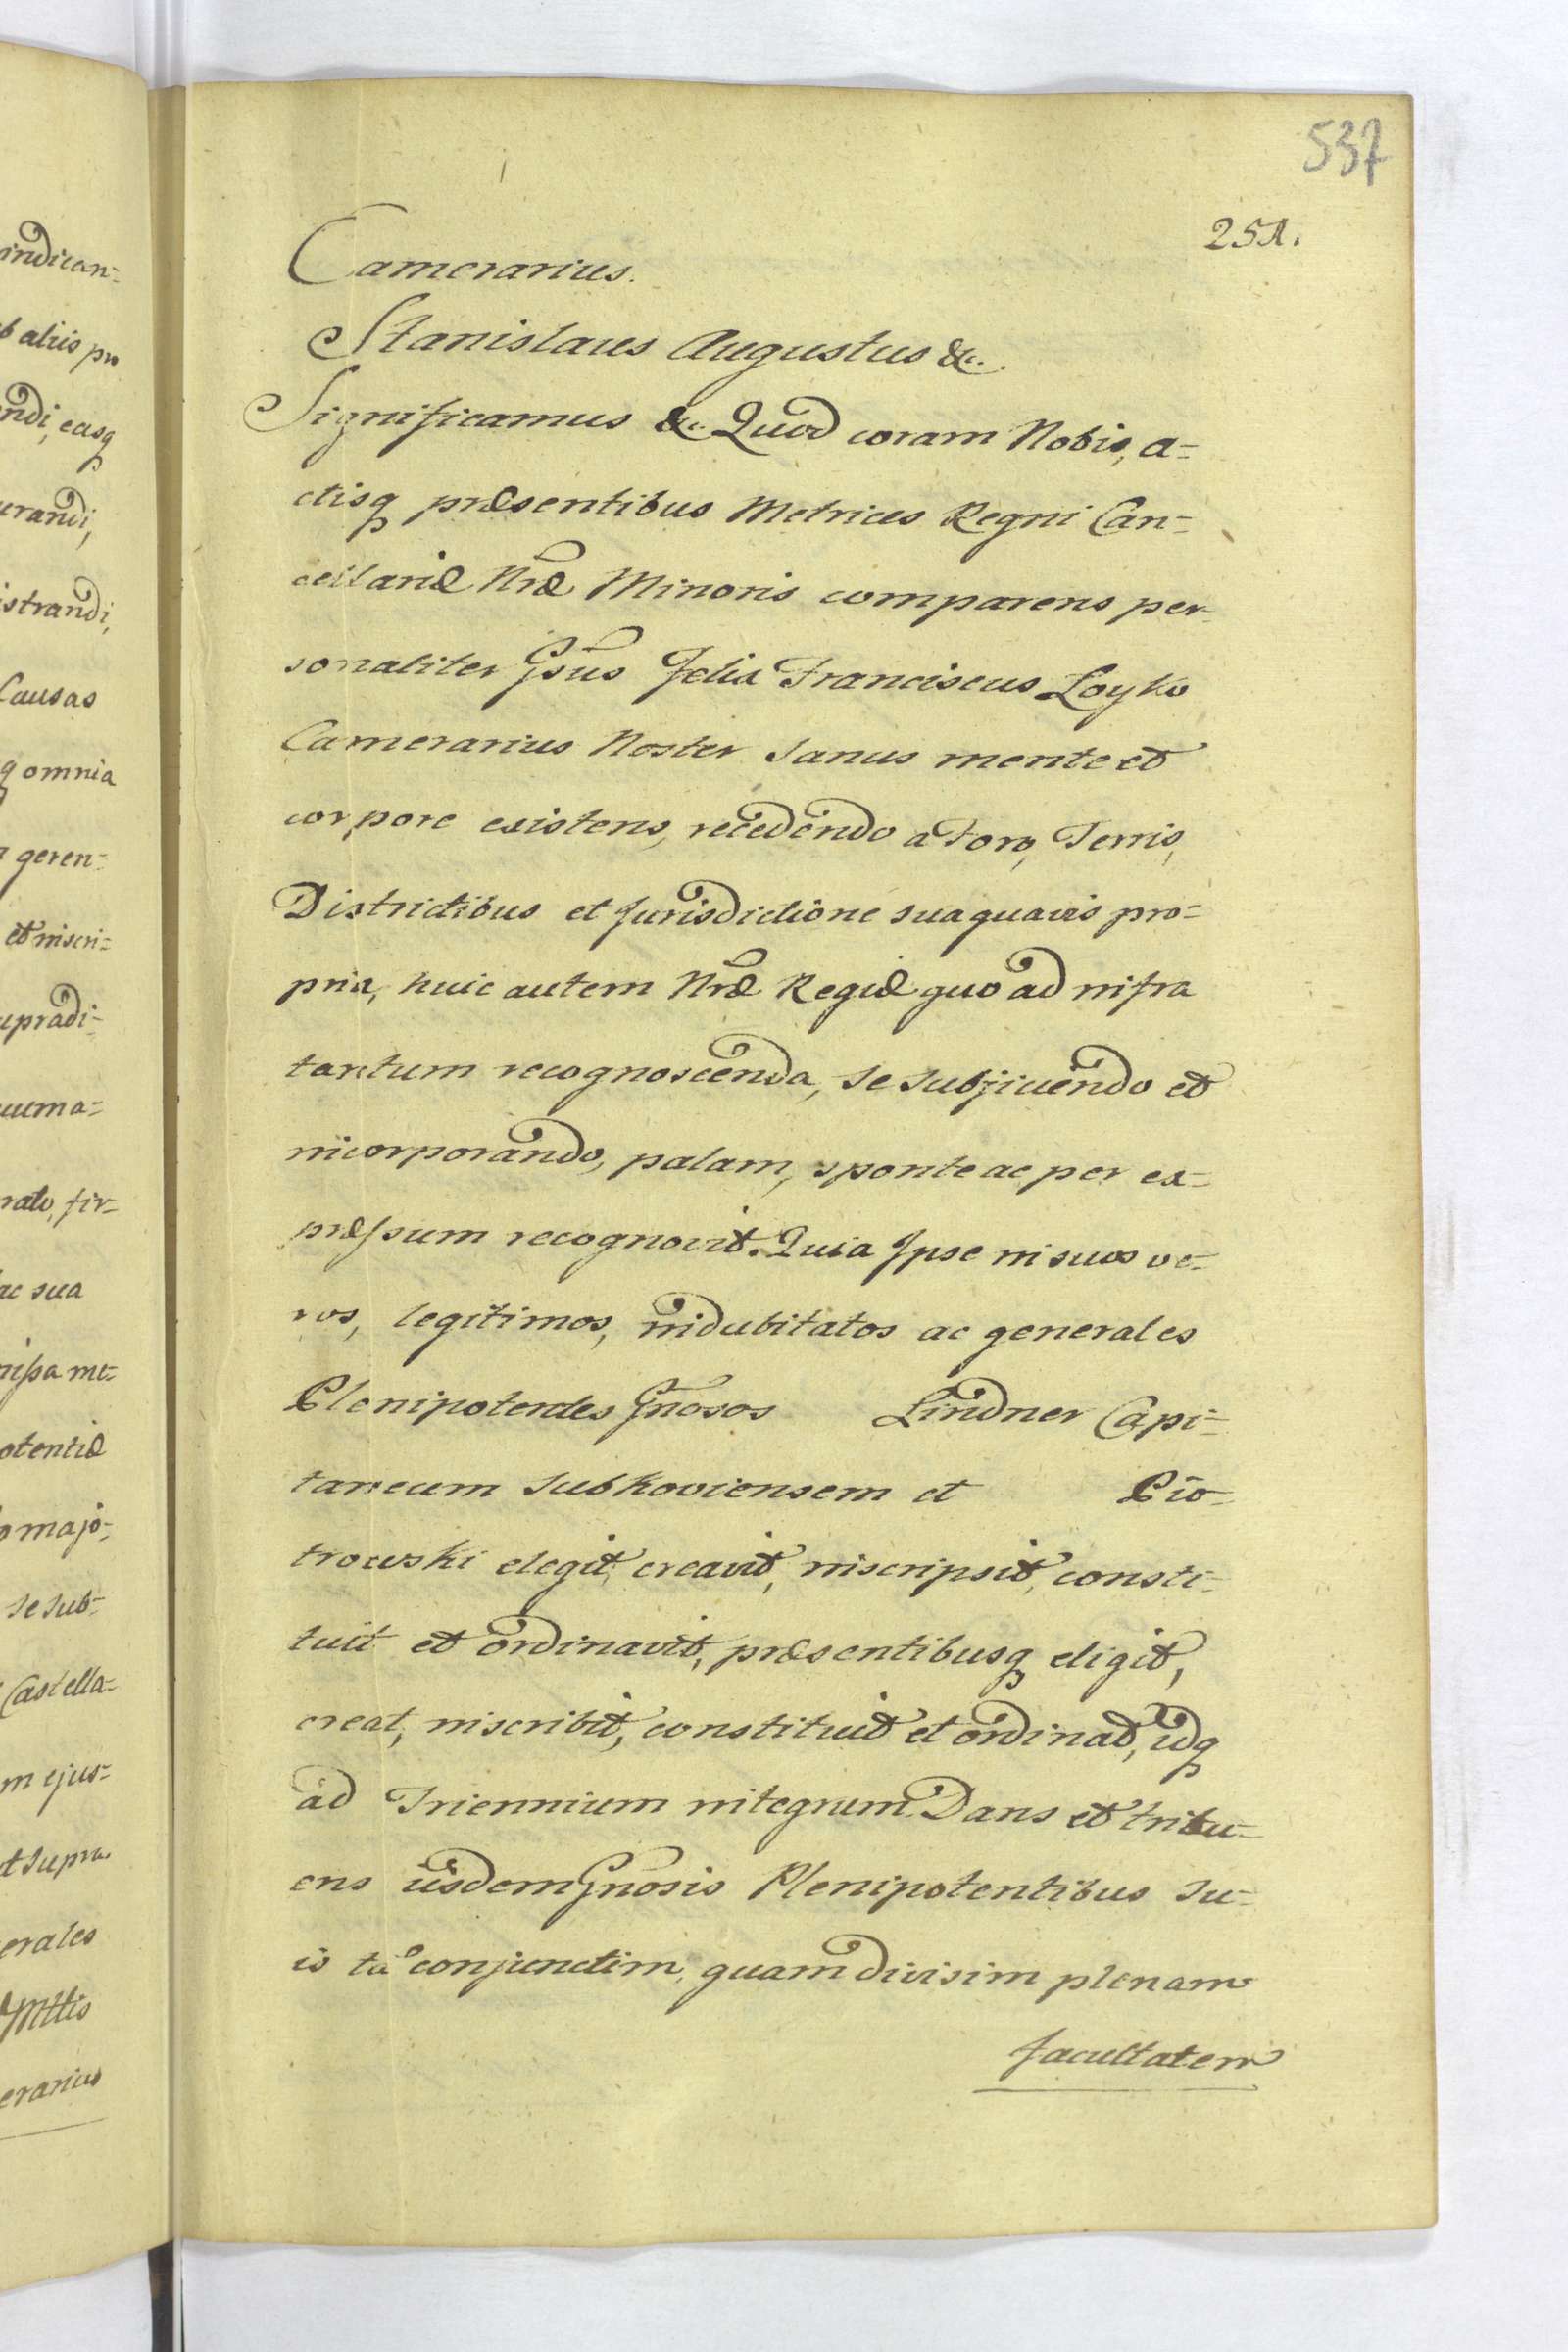 537
251.
Camerarius.
Stanislaus Augustus &c.
Significamus &c. Quod coram Nobis, a=
ctisq præsentibus Metrices Regni Can=
cellariæ Nræ Minoris comparens per
sonaliter Gsus Felix Franciscus Loyko
Camerarius Noster sanus mente et
corpore existens, recedendo a Foro, Terris,
Districtibus et Jurisdictione sua quavis pro=
pria, huic autem Nræ Regiæ quo ad infra
tantum recognoscenda, se subjiciendo et
incorporando, palam, sponte ac per ex=
præssum recognovit. Quia Ipse in suos ve=
ros, legitimos, indubitatos ac generales
Plenipotentes Gnosos Lindner Capi=
taneum Subkoviensem et Pio=
trowski elegit, creavit, inscripsit, consti=
tuit et ordinavit, præsentibusq eligit,
creat, inscribit, constituit et ordinat, idq
ad Triennium integrum. Dans et tribu=
ens iisdem Gnosis Plenipotentibus su=
is ta conjunctim, quam divisim plenam
facultatem
indican=
b aliis pro
endi, easq
urandi,
istrandi,
Causas
q omnia
geren=
et inscri=
upradi=
uuma=
rato, fir=
ac sua
missa me=
otentiæ
majo=
se sub=
Castella=
m ejus=
t supra
erales
Mttis
erarius